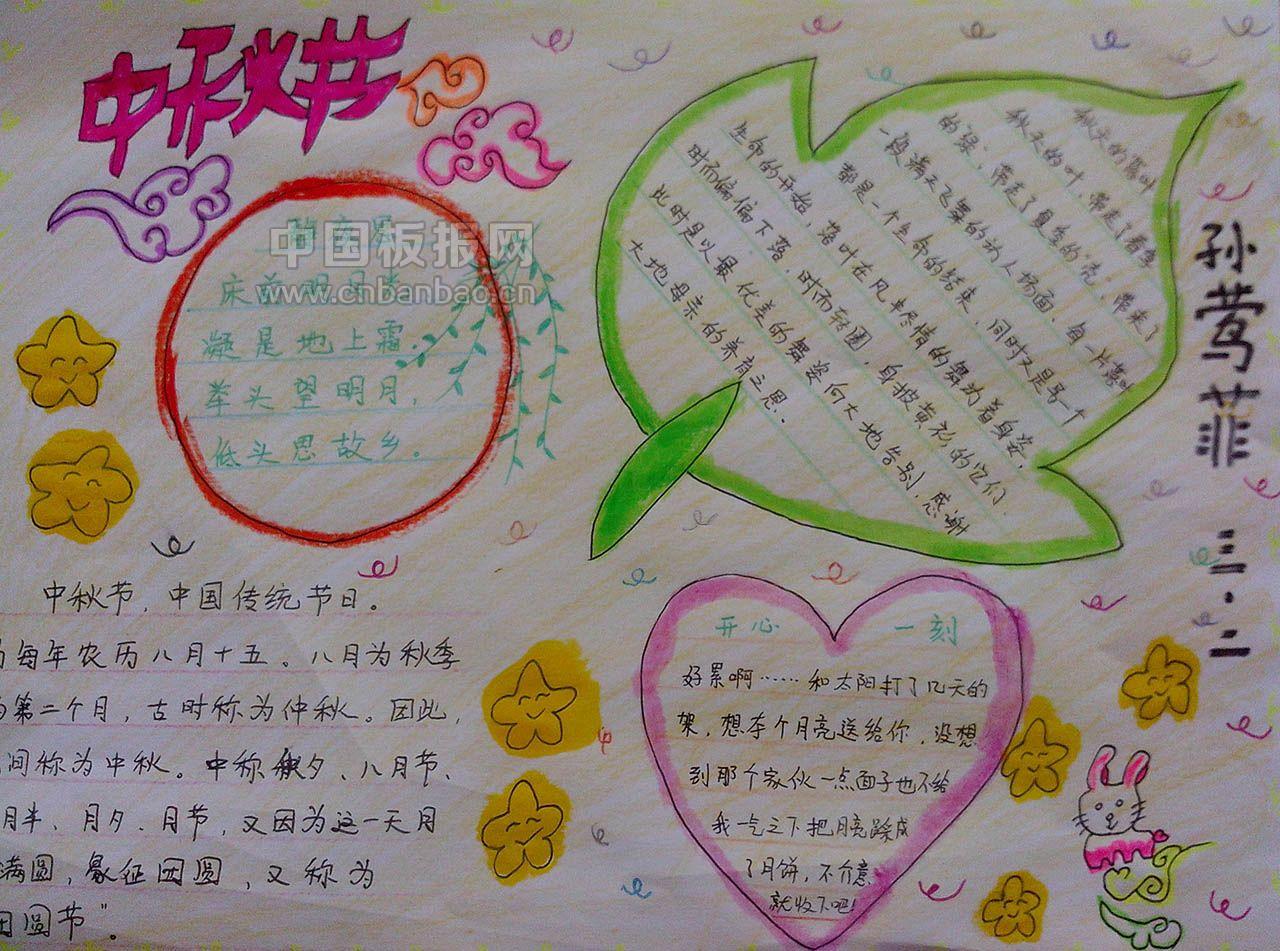 中秋节
中国板报网
www.cnbanbao.cn
床前明月
凝是地上霜.
举头望明月,
低头思故乡。
中秋节,中国传统节日。
每年农历八月十五。八月为秋季
第二个月,古时称为仲秋。因此,
间称为中秋。中称秋夕、八月节、
月半、月夕、月节,又因为这一天月
满圆,象征团圆,又称为
团圆节"。
秋天的落叶
秋天的叶,带走了春季
的"绿",带走了夏生的"亮",带来了
一段满天飞舞的动人场面。每一片落叶
都是一个生命的结束,同时又是另一个
生命的开始,落叶在风中尽情的舞动着身姿,
时而偏偏下落,时而转圈,身披黄衫的它们
此时是以最优美的舞姿向大地告别,感谢
大地母亲的养育之恩.
开心一刻
好累啊……和太阳打了几天的
架,想李个月亮送给你,没想
到那个家伙一点面子也不给
我一气之下把月亮踩成
了月饼,不介意
就收下吧!
孙莺菲 三·二